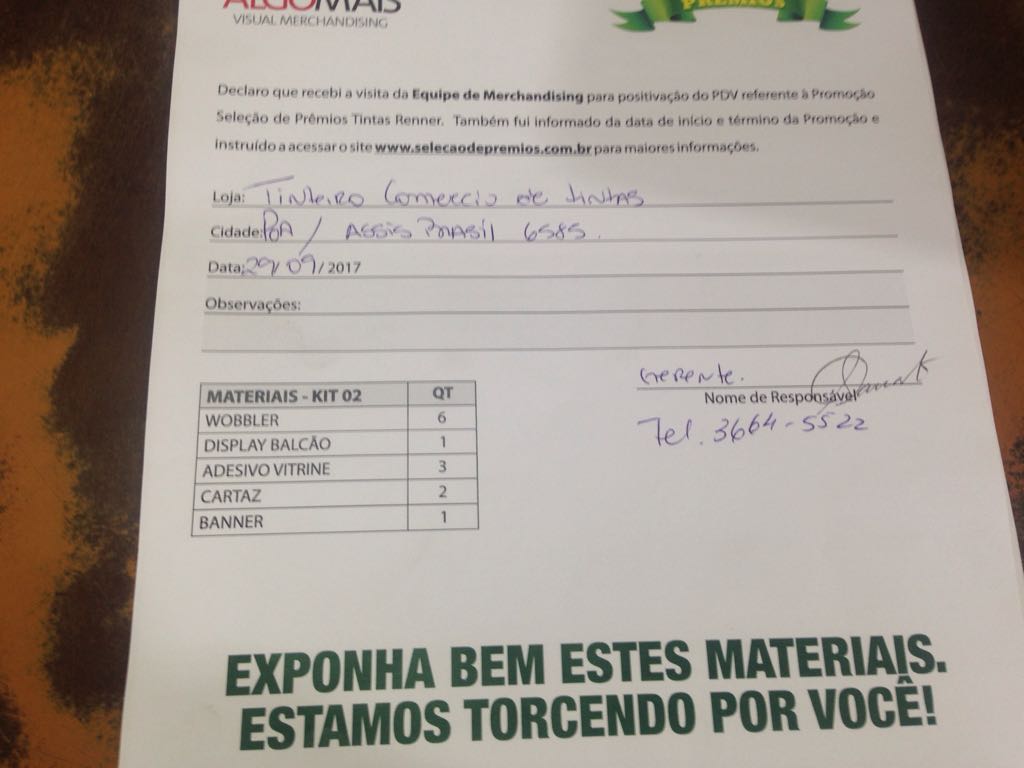 ALGOMAIS
VISUAL MERCHANDISING
PRÊMIOS
Declaro que recebi a visita da Equipe de Merchandising para positivação do PDV referente à Promoção
Seleção de Prêmios Tintas Renner. Também fui informado da data de início e término da Promoção e
instruído a acessar o site www.selecaodepremios.com.br para maiores informações.
Loja: Tinteiro Comercio de tintas
Cidade: POA / ASSIS BRASIL 6585.
Data: 29/09/2017
Observações:
Gerente.
Nome de Responsável
Tel. 3664-5522
MATERIAIS - KIT 02 QT
WOBBLER 6
DISPLAY BALCÃO 1
ADESIVO VITRINE 3
CARTAZ 2
BANNER 1
EXPONHA BEM ESTES MATERIAIS.
ESTAMOS TORCENDO POR VOCÊ!